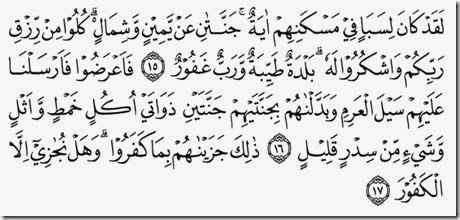 لَقَدْ كَانَ لِسَبَاٍ فِيْ مَسْكَنِهِمْ اٰيَةٌ ۚ جَنَّتٰنِ عَنْ يَّمِيْنٍ وَّشِمَالٍ ەۗ كُلُوْا مِنْ رِّزْقِ
رَبِّكُمْ وَاشْكُرُوْا لَهٗ ۗ بَلْدَةٌ طَيِّبَةٌ وَّرَبٌّ غَفُوْرٌ ١٥ فَاَعْرَضُوْا فَاَرْسَلْنَا
عَلَيْهِمْ سَيْلَ الْعَرِمِ وَبَدَّلْنٰهُمْ بِجَنَّتَيْهِمْ جَنَّتَيْنِ ذَوَاتَيْ اُكُلٍ خَمْطٍ وَّاَثْلٍ
وَّشَيْءٍ مِّنْ سِدْرٍ قَلِيْلٍ ١٦ ذٰلِكَ جَزَيْنٰهُمْ بِمَا كَفَرُوْا ۗ وَهَلْ نُجٰزِيْٓ اِلَّا
الْكَفُوْرَ ١٧